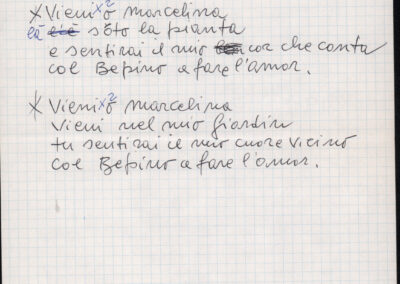 x Vieni x2 ò marcelina
là sòto la pianta
e sentirai il mio cor che canta
col Bepino a fare l'amor.
x Vieni x2 ò marcelina
Vieni nel mio giardin
tu sentirai il mio cuore vicino
col Bepino a fare l'amor.